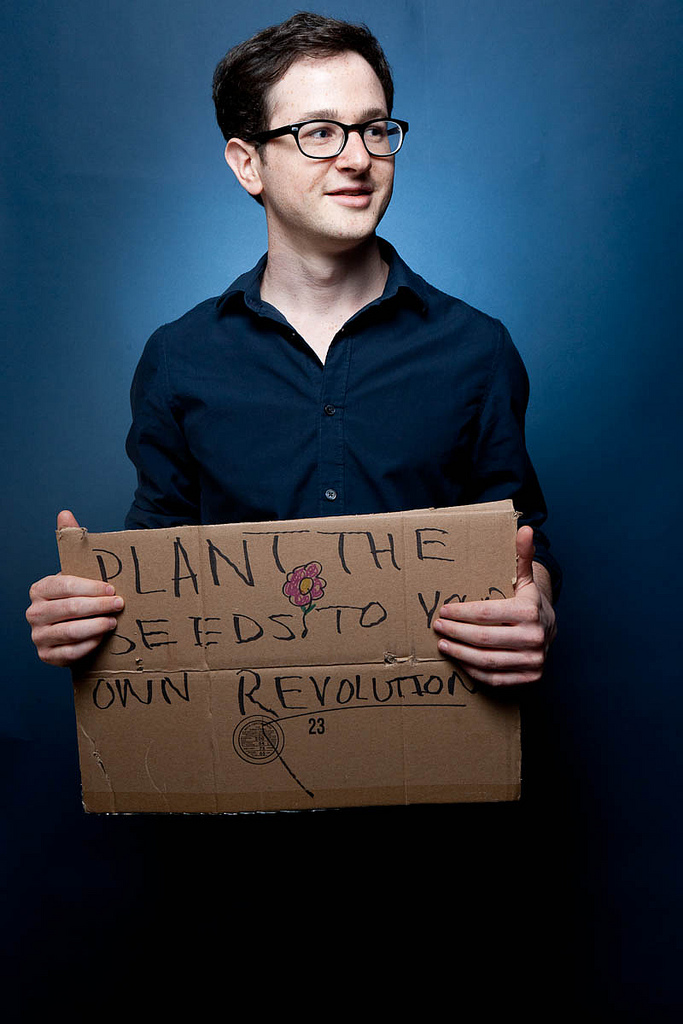 PLANT THE
SEEDS TO YOUR
OWN REVOLUTION
23